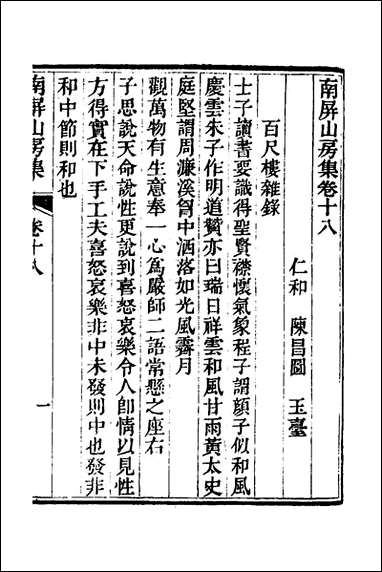 南屏山房集卷十八
仁和　陳昌圖　玉臺
百尺樓雜錄
士子讀書要識得聖賢襟懷氣象程子謂顏子似和風
慶雲朱子作明道贊亦曰瑞日祥雲和風甘雨黃太史
庭堅謂周濂溪胷中洒落如光風霽月
觀萬物有生意奉一心為嚴師二語常懸之座右
子思說天命說性更說到喜怒哀樂令人卽情以見性
方得實在下手工夫喜怒哀樂非中未發則中也發非
和中節則和也
南屏山房集
卷十八
一